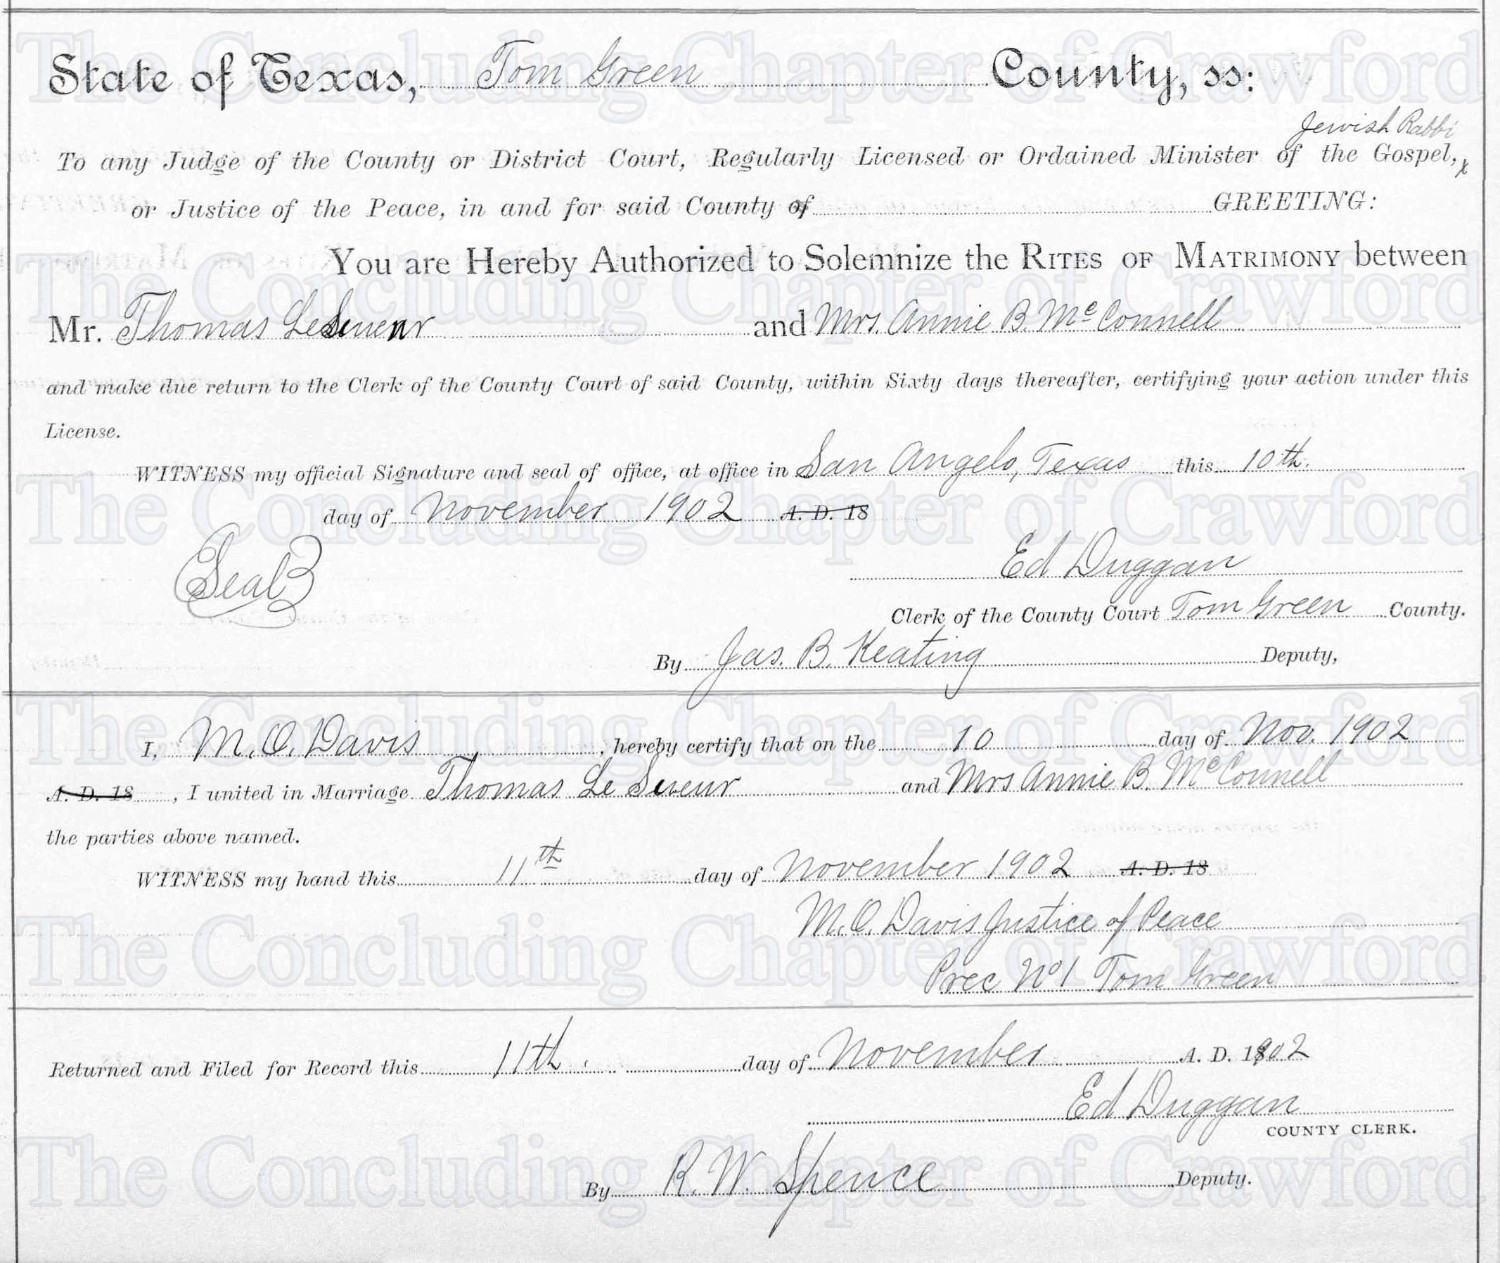 State of Texas, Tom Green County, ss:
Jewish Rabbi
To any Judge of the County or District Court, Regularly Licensed or Ordained Minister of the Gospel,
or Justice of the Peace, in and for said County of GREETING:
You are Hereby Authorized to Solemnize the RITES OF MATRIMONY between
Mr. Thomas LeSueur and Mrs. Annie B. McConnell
and make due return to the Clerk of the County Court of said County, within Sixty days thereafter, certifying your action under this
License.
WITNESS my official Signature and seal of office, at office in San Angelo, Texas this 10th.
day of November 1902 A. D. 18
Seal
Ed Duggan
Clerk of the County Court Tom Green County.
By Jas. B. Keating Deputy,
I, M. O. Davis, hereby certify that on the 10 day of Nov. 1902
A. D. 18, I united in Marriage Thomas Le Sueur and Mrs Annie B. McConnell
the parties above named.
WITNESS my hand this 11th day of November 1902 A. D. 18
M. O. Davis Justice of Peace
Prec No 1 Tom Green
Returned and Filed for Record this 11th. day of November A. D. 1902
Ed Duggan
COUNTY CLERK.
By R. W. Spence Deputy.
The Concluding Chapter of Crawford
The Concluding Chapter of Crawford
The Concluding Chapter of Crawford
The Concluding Chapter of Crawford
The Concluding Chapter of Crawford
The Concluding Chapter of Crawford